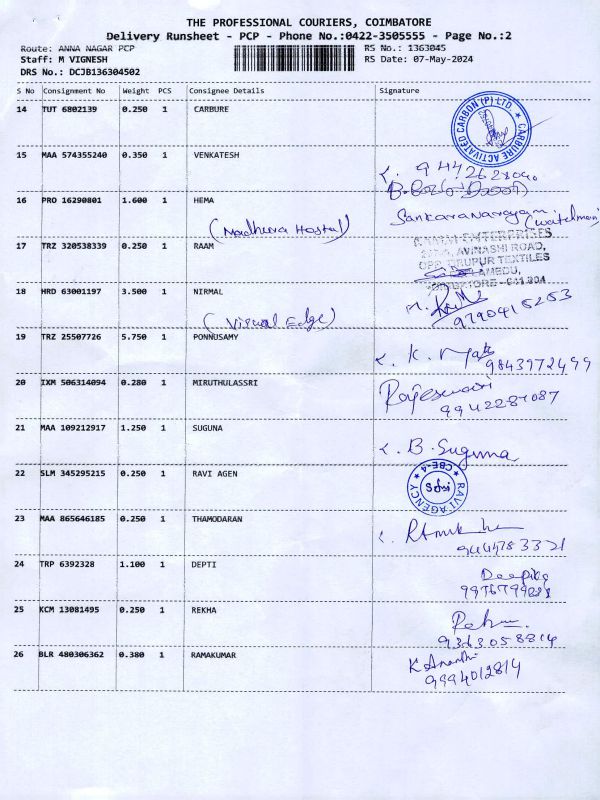 THE PROFESSIONAL COURIERS, COIMBATORE
Delivery Runsheet - PCP - Phone No.:0422-3505555 - Page No.:2
Route: ANNA NAGAR PCP RS No.: 1363045
Staff: M VIGNESH RS Date: 07-May-2024
DRS No.: DCJB136304502
S No Consignment No Weight PCS Consignee Details Signature
14 TUT 6802139 0.250 1 CARBURE
CARBURE ACTIVATED CARBON (P) LTD.
15 MAA 574355240 0.350 1 VENKATESH
16 PRO 16290801 1.600 1 HEMA
Sankaranarayanan (watchman)
17 TRZ 320538339 0.250 1 RAAM
ENTERPRISES
AVINASHI ROAD,
OPP. TIRUPUR TEXTILES
18 HRD 63001197 3.500 1 NIRMAL
(Visual Edge) 9790415253
19 TRZ 25507726 5.750 1 PONNUSAMY
K. 9843972499
20 IXM 506314094 0.280 1 MIRUTHULASSRI
Rajeswari
9942287087
21 MAA 109212917 1.250 1 SUGUNA
B. Suguna
22 SLM 345295215 0.250 1 RAVI AGEN
RAVI AGENCY CBE-4
23 MAA 865646185 0.250 1 THAMODARAN
9444783321
24 TRP 6392328 1.100 1 DEPTI
Deepika
25 KCM 13081495 0.250 1 REKHA
9363058814
26 BLR 480306362 0.380 1 RAMAKUMAR
K Ananthi
9994012814